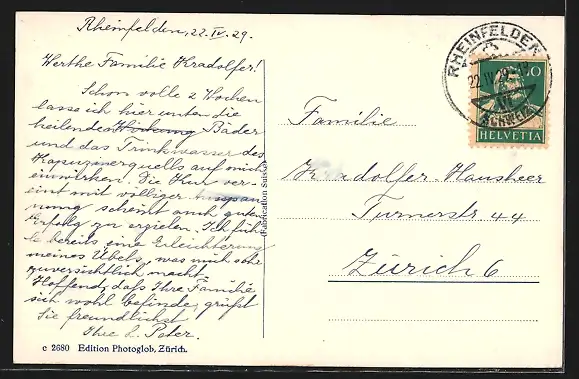 Rheinfelden, 22. IV. 29.
Werthe Familie Kradolfer!
Schon volle 2 Wochen
lasse ich hier unten die
heilenden Wirkung Bäder
und das Trinkwasser der
Kapuzinerquelle auf mich
einwirken. Die Kur ver-
eint mit völliger Ausspan-
nung scheint auch guten
Erfolg zu erzielen. Ich füh-
le bereits eine Erleichterung
meines Übels, was mich sehr
zuversichtlich macht.
Hoffend, daß Ihre Familie
sich wohl befinde, grüßt
Sie freundlichst
Ihr L. Peter.
c 2680 Edition Photoglob, Zürich.
(Fabrication Suisse)
RHEINFELDEN
22. IV. 29
SCHWEIZ
10
HELVETIA
Familie
Kradolfer-Hausheer
Turnerstr. 44
Zürich 6